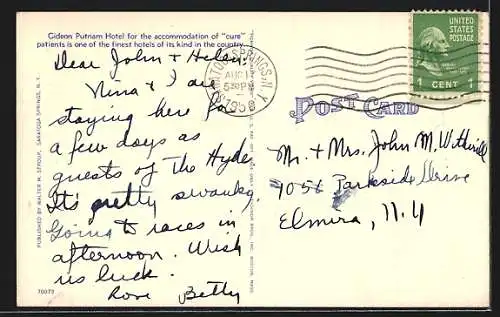 Gideon Putnam Hotel for the accommodation of "cure"
patients is one of the finest hotels of its kind in the country.
Dear John + Helen:
Nina + I are
staying here for
a few days as
guests of the Hyde
It's pretty swanky
Going to races in
afternoon. Wish
us luck.
Love Betty
PUBLISHED BY WALTER H. STROUP, SARATOGA SPRINGS, N. Y.
70073
SARATOGA SPRINGS, N.Y.
AUG 17
5 30 PM
1950
UNITED
STATES
POSTAGE
1 CENT 1
POST CARD
Mr. + Mrs. John M.
705 Parkside Drive
Elmira, N.Y